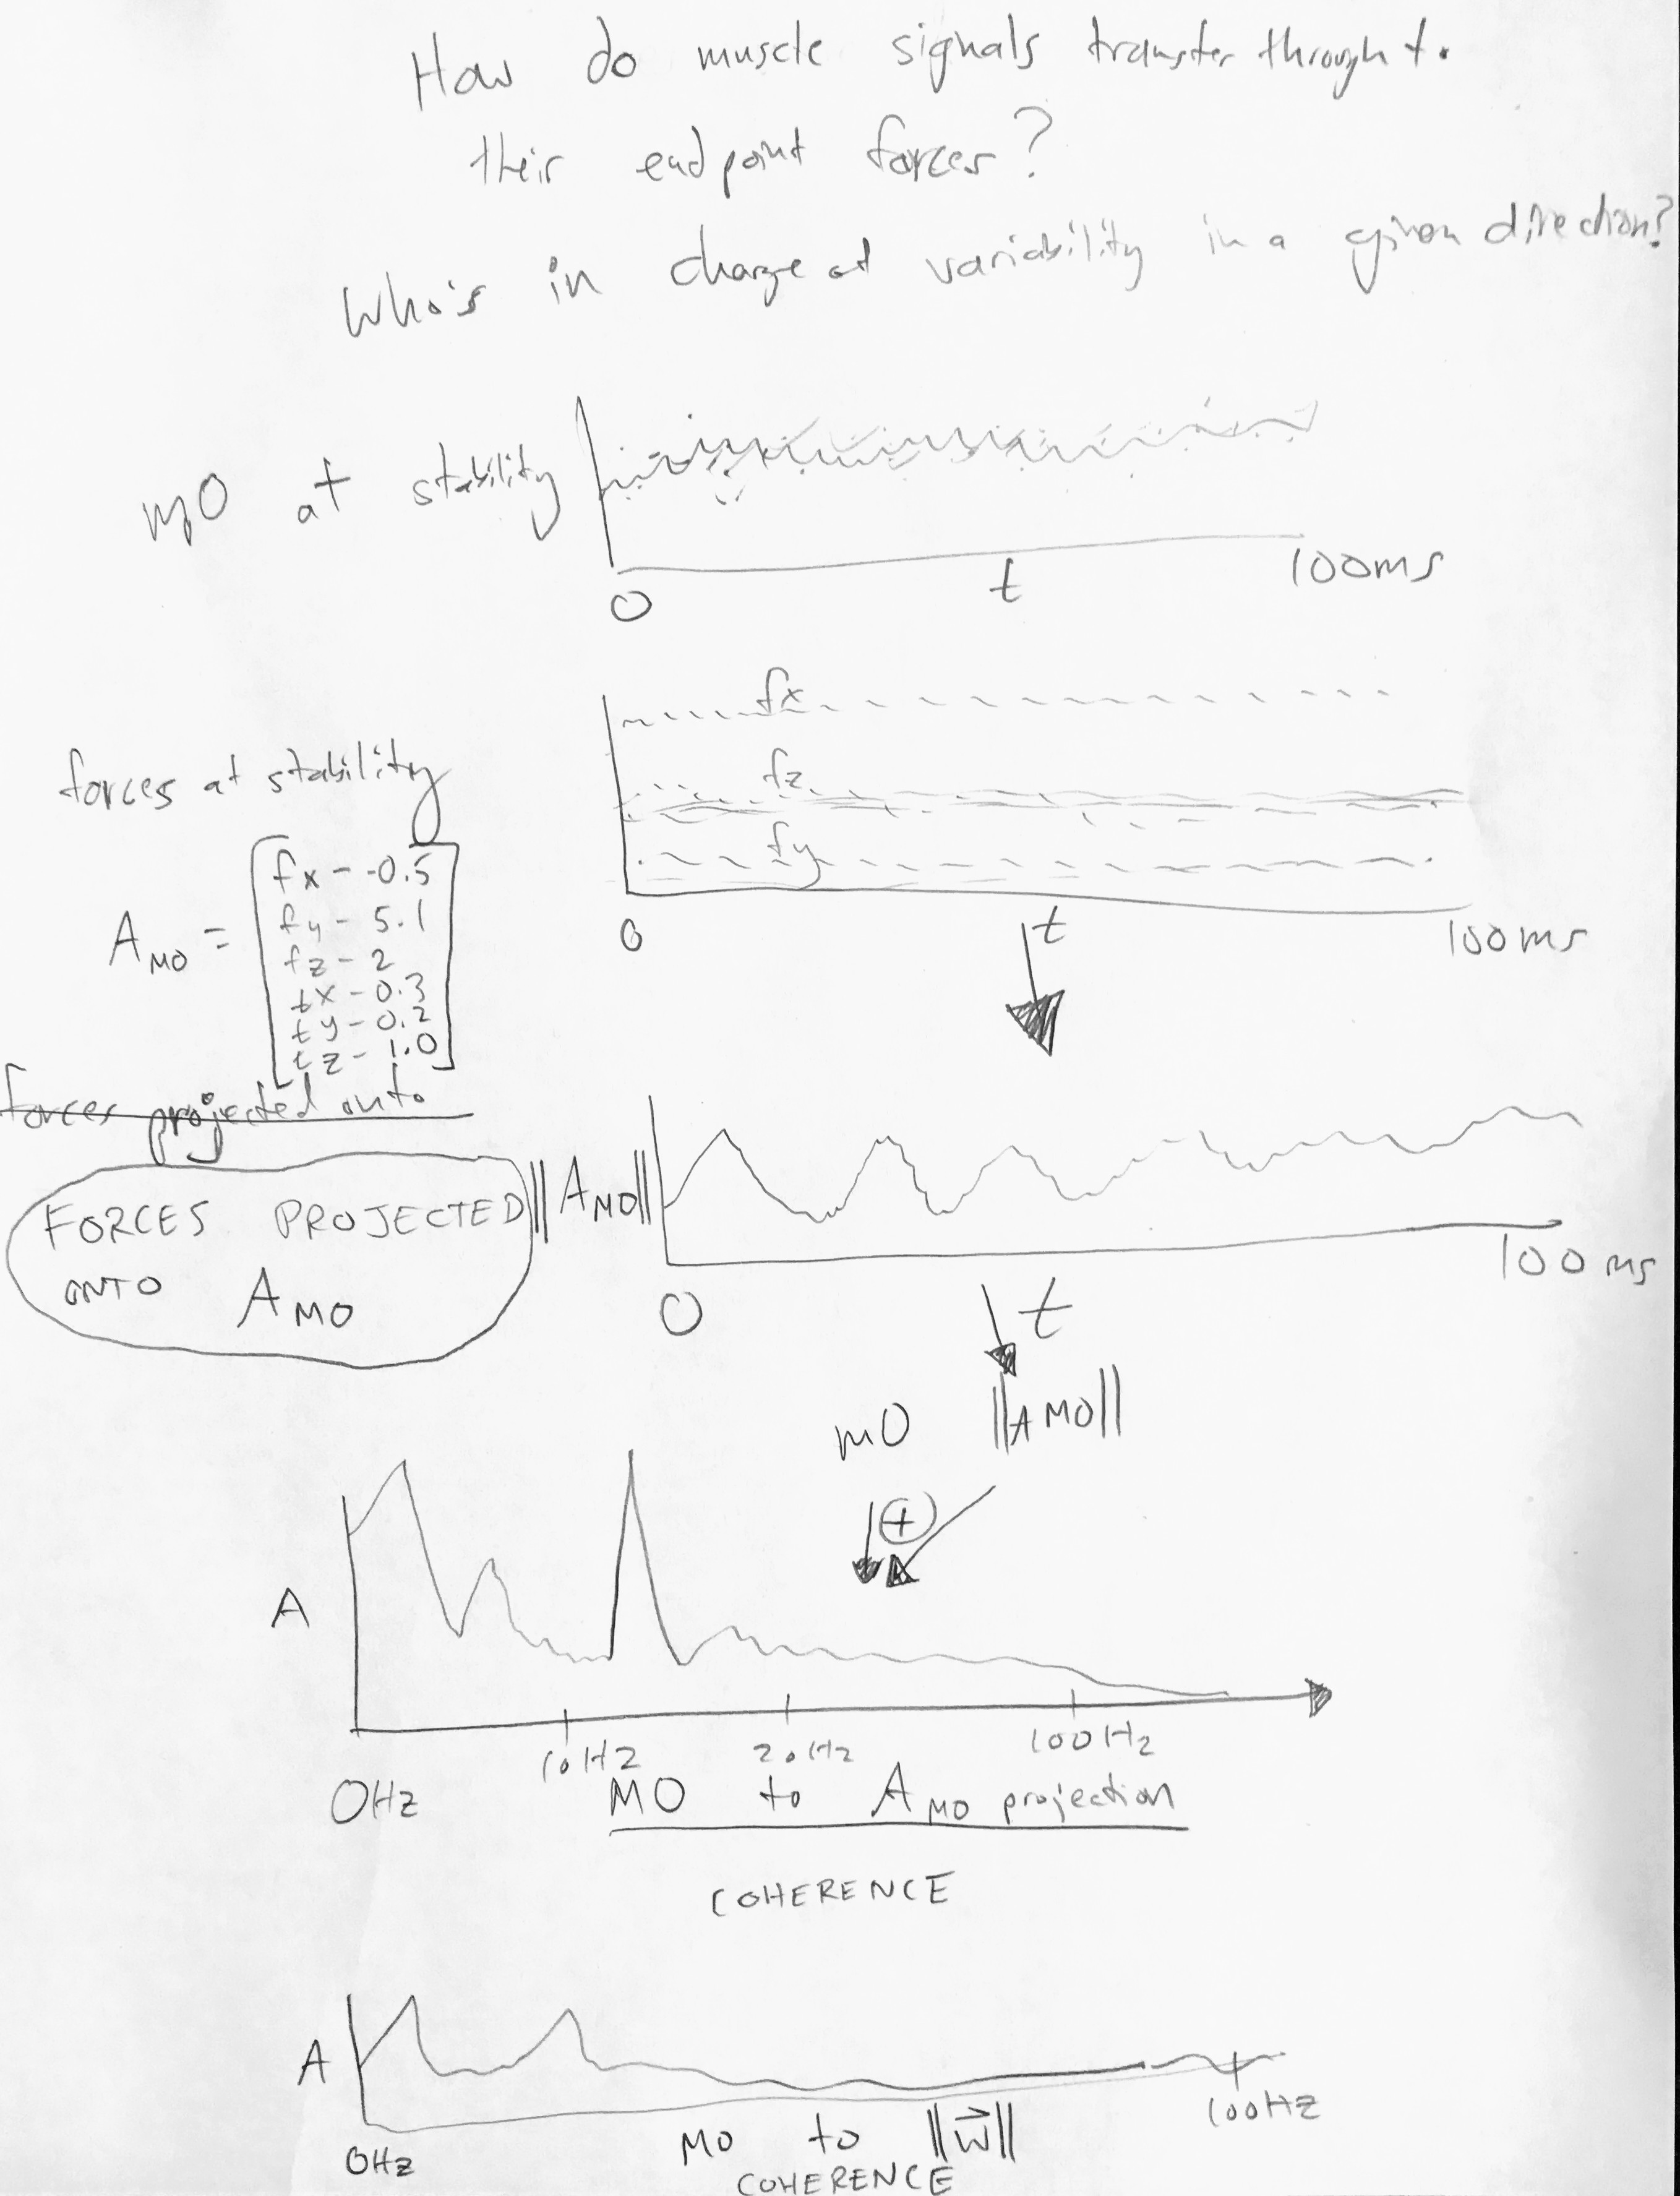 How do muscle signals transfer throught.
their endpoint forces?
Who's in charge of variability in a given direction?
m0 at stability
0 t 100ms
fx
fz
fy
forces at stability
0 t 100ms
A_M0 =
fx - -0.5
fy - 5.1
fz - 2
tx - 0.3
ty - 0.2
tz - 1.0
forces projected onto
FORCES PROJECTED
ONTO A_M0
||A_M0||
0 t 100ms
m0 ||A M0||
+
A
0Hz 10Hz 20Hz 100Hz
M0 to A_M0 projection
COHERENCE
A
0Hz 100Hz
M0 to ||w⃗||
COHERENCE